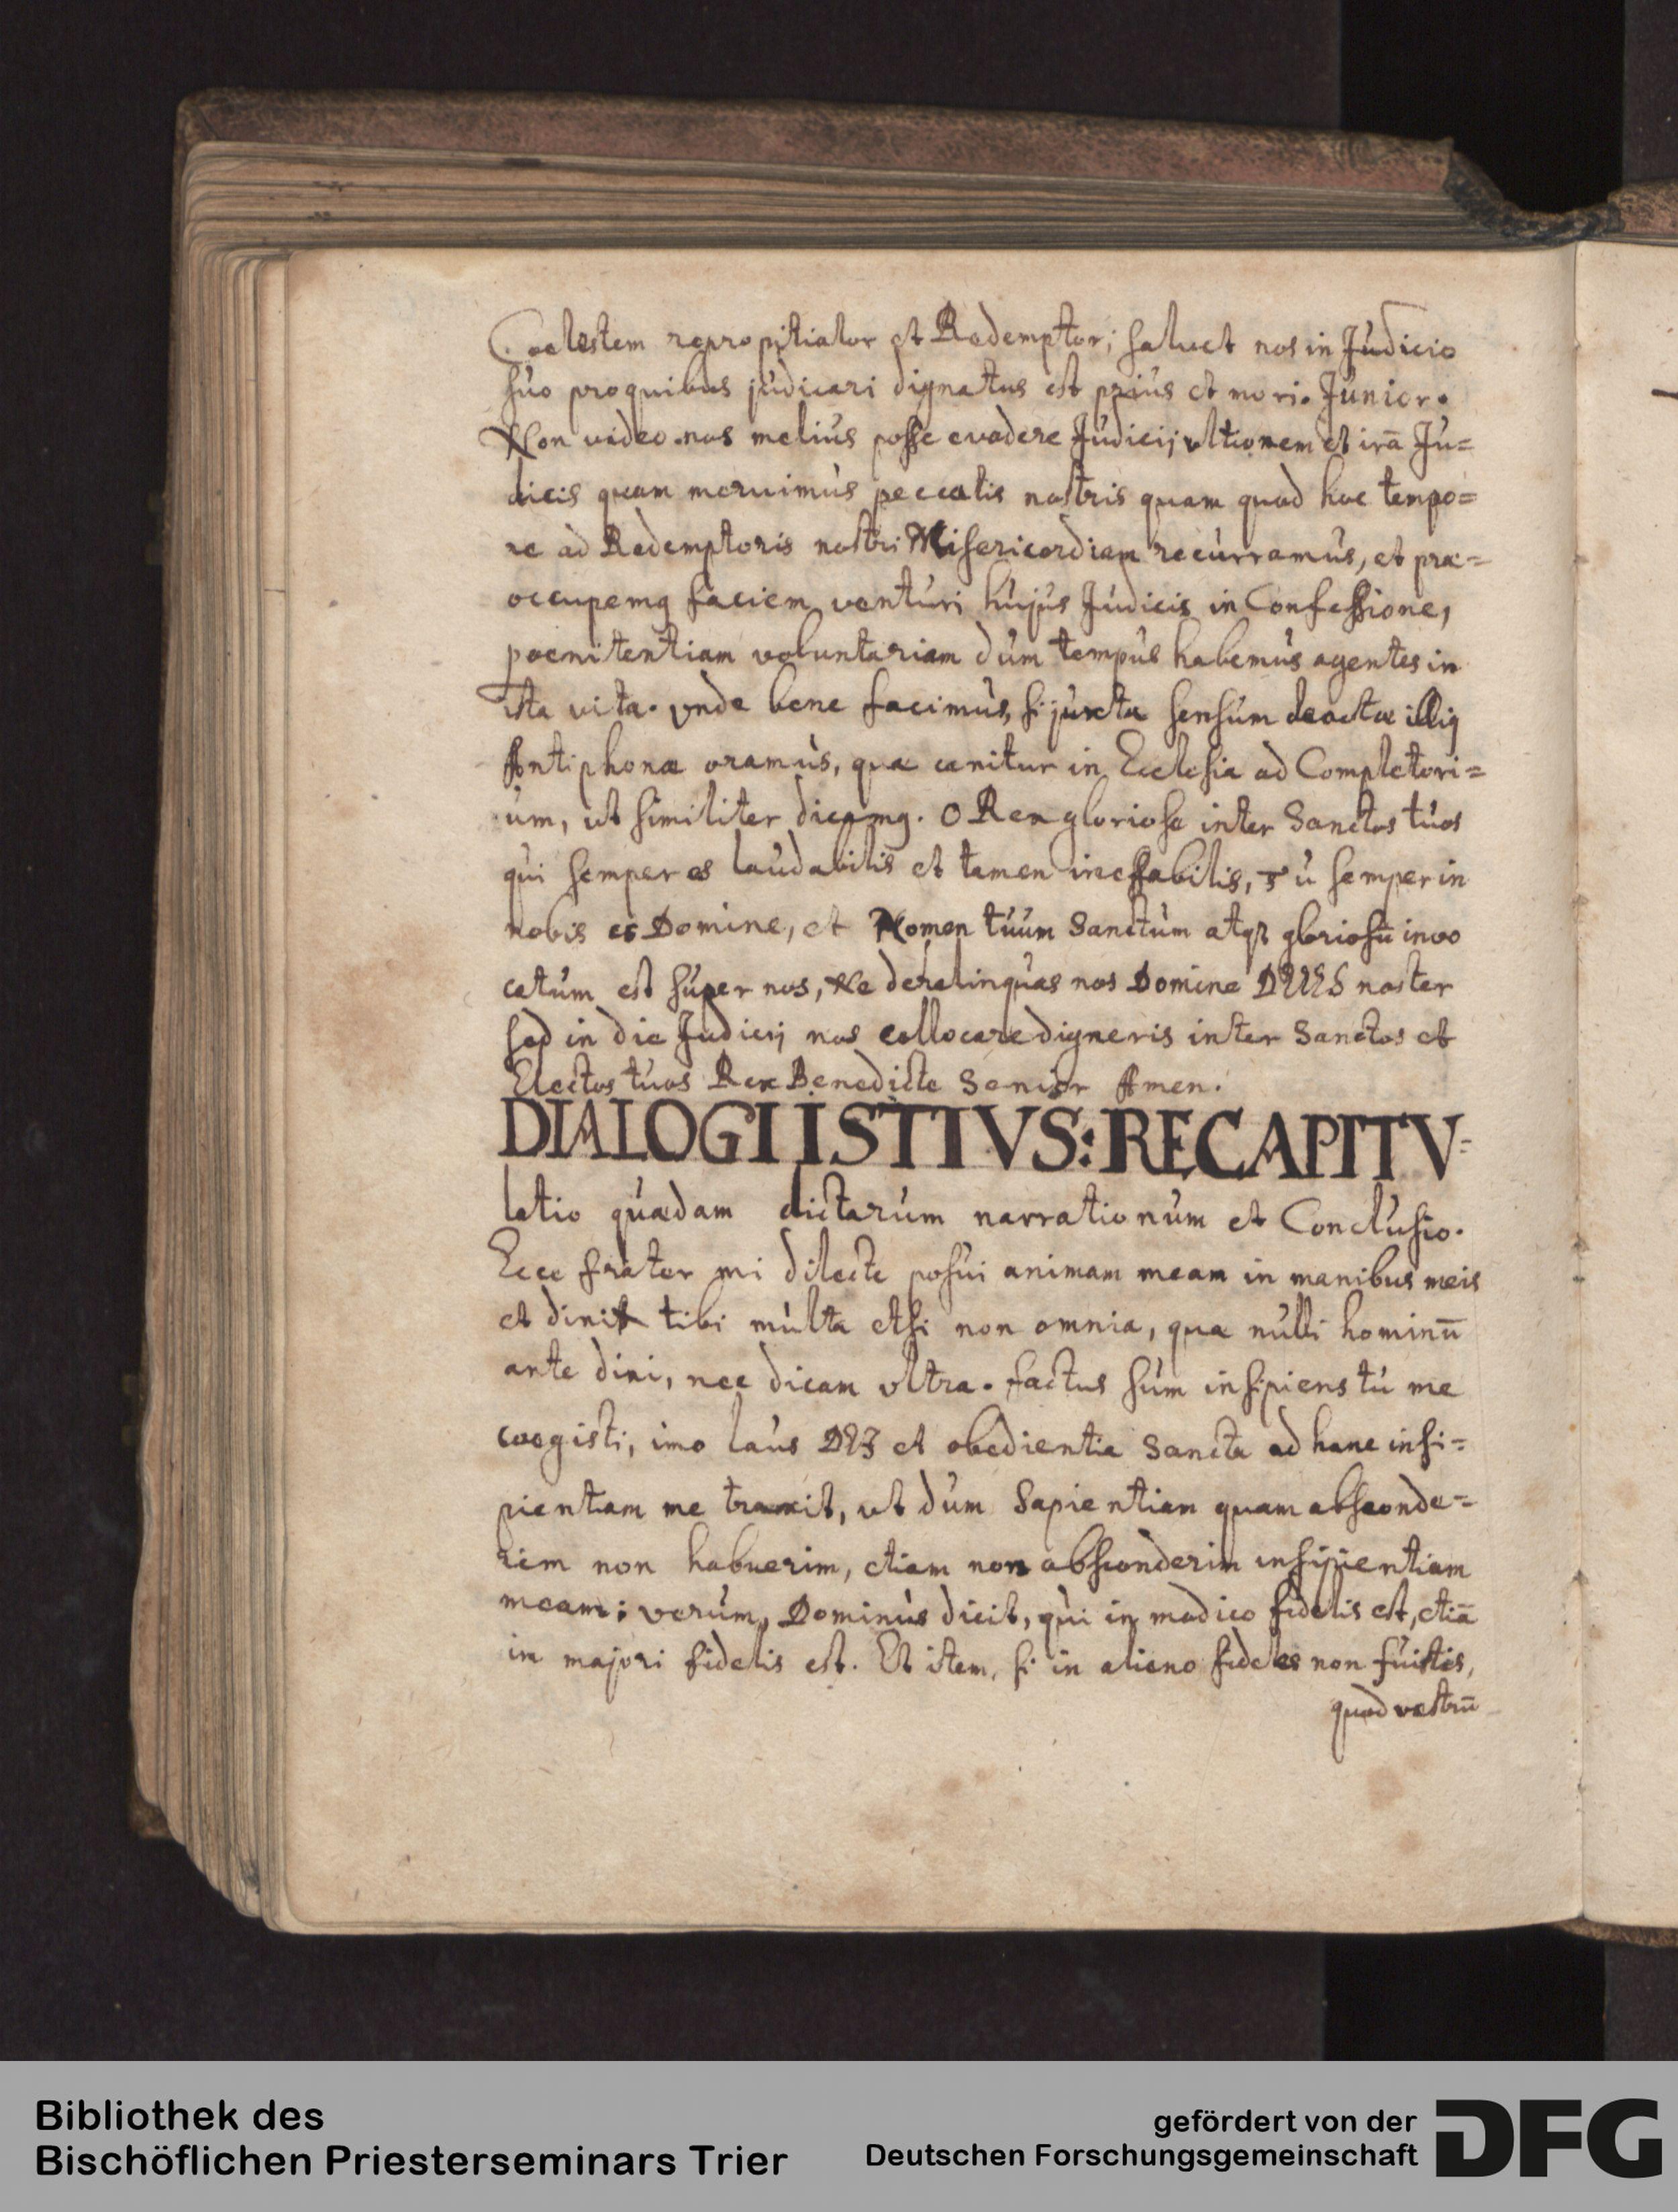 Coelestem repropitiator et Redemptor; salvet nos in Judicio
suo pro quibus judicari dignatus est prius et mori. Junior.
Non video nos melius posse evadere Judicij ultionem et irā Ju=
dicis quam meruimus peccatis nostris quam quod hoc tempo=
re ad Redemptoris nostri Misericordiam recurramus, et præ=
occupemq faciem venturi hujus Judicis in Confessione,
poenitentiam voluntariam dum tempus habemus agentes in
ista vita. vnde bene facimus, si juxta sensum illiq
Antiphonæ oramus, quæ canitur in Ecclesia ad Completori=
um, ut similiter dicamq. O Rex gloriose inter Sanctos tuos
qui semper es laudabilis et tamen ineffabilis, Tu semper in
nobis es Domine, et Nomen tuum Sanctum atqȝ gloriosū invo
catum est super nos, Ne derelinquas nos Domine DEUS noster
sed in die Judicij nos collocare digneris inter Sanctos et
Electos tuos Rex Benedicte Senior Amen.
DIALOGI ISTIVS: RECAPITV=
latio quædam dictarum narrationum et Conclusio.
Ecce frater mi dilecte posui animam meam in manibus meis
et dixi tibi multa etsi non omnia, quæ nulli hominū
ante dixi, nec dicam vltra. factus sum insipiens tu me
coegisti, imo laus DEI et obedientia Sancta ad hanc insi=
pientiam me traxit, vt dum Sapientiam quam absconde=
rem non habuerim, etiam non absconderim insipientiam
meam: verum, Dominus dicit, qui in modico fidelis est, etiā
in majori fidelis est. Et item, si in alieno fideles non fuistis,
quod vestrū
Bibliothek des
Bischöflichen Priesterseminars Trier
gefördert von der
Deutschen Forschungsgemeinschaft
DFG